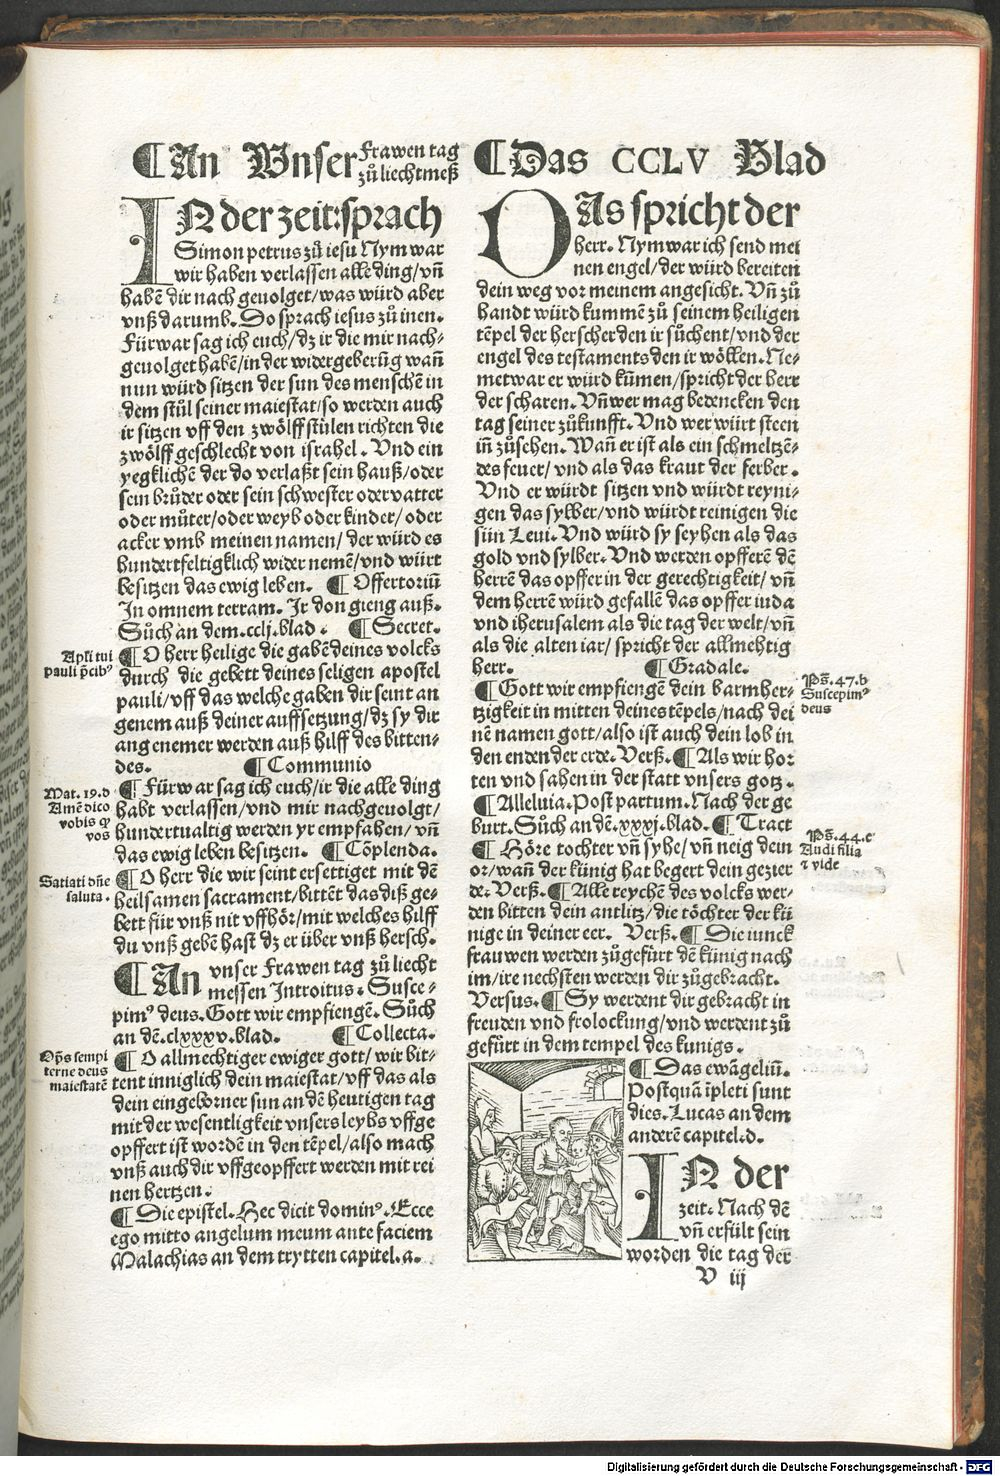 ¶An Vnser Frawen tag
zů liechtmeß
IN der zeit: sprach
Simon petrus zů iesu Nym war
wir haben verlassen alle ding/ vñ
habē dir nach geuolget/ was würd aber
vnß darumb. Do sprach iesus zů inen.
Fürwar sag ich euch/ dz ir die mir nach-
geuolget habē/ in der widergeberūg wañ
nun würd sitzen der sun des menschē in
dem stůl seiner maiestat/ so werden auch
ir sitzen vff den zwölff stülen richten die
zwölff geschlecht von israhel. Vnd ein
yegklichē der do verlaßt sein hauß/ oder
sein brůder oder sein schwester oder vatter
oder můter/ oder weyb oder kinder/ oder
acker vmb meinen namen/ der würd es
hundertfeltigklich wider nemē/ vnd würt
besitzen das ewig leben. ¶ Offertoriū
In omnem terram. Ir don gieng auß.
Sůch an dem .cclj. blad. ¶ Secret.
Apłi tui
pauli p̄cib⁹
¶ O herr heilige die gabē deines volcks
durch die gebett deines seligen apostel
pauli/ vff das welche gaben dir seint an
genem auß deiner auffsetzung/ dz sy dir
angenemer werden auß hilff des bitten-
des. ¶ Communio
Mat. 19. d
Amē dico
vobis qͥ
vos
¶ Fürwar sag ich euch/ ir die alle ding
habt verlassen/ vnd mir nachgeuolgt/
hundertualtig werden yr empfahen/ vñ
das ewig leben besitzen. ¶ Cōplenda.
Satiati dñe
saluta.
¶ O herr die wir seint ersettiget mit dē
heilsamen sacrament/ bittēt das diß ge-
bett für vnß nit vffhör/ mit welches hilff
du vnß gebē hast dz er über vnß hersch.
¶ An vnser Frawen tag zů liecht
messen Introitus. Susce-
pim⁹ deus. Gott wir empfiengē. Sůch
an dē .clxxxv. blad. ¶ Collecta.
Op̄s sempi
terne deus
maiestatē
¶ O allmechtiger ewiger gott/ wir bit-
tent inniglich dein maiestat/ vff das als
dein eingeborner sun an dē heutigen tag
mit der wesentligkeit vnsers leybs vffge
opffert ist wordē in den tēpel/ also mach
vnß auch dir vffgeopffert werden mit rei
nen hertzen.
¶ Die epistel. Hec dicit domin⁹. Ecce
ego mitto angelum meum ante faciem
Malachias an dem trytten capitel. a.
¶ Das CCLV Blad
DAs spricht der
herr. Nym war ich send mei
nen engel/ der würd bereiten
dein weg vor meinem angesicht. Vñ zů
handt würd kummē zů seinem heiligen
tēpel der herscher den ir sůchent/ vnd der
engel des testaments den ir wöllen. Ne-
met war er würd kūmen/ spricht der herr
der scharen. Vñ wer mag bedencken den
tag seiner zůkunfft. Vnd wer würt steen
iñ zůsehen. Wañ er ist als ein schmeltzē-
des feuer/ vnd als das kraut der ferber.
Vnd er würdt sitzen vnd würdt reyni-
gen das sylber/ vnd würdt reinigen die
sün Leui. Vnd würd sy seyhen als das
gold vnd sylber. Vnd werden opfferē dē
herrē das opffer in der gerechtigkeit/ vñ
dem herrē würd gefallē das opffer iuda
vnd iherusalem als die tag der welt/ vñ
als die alten iar/ spricht der allmehtig
herr. ¶ Gradale.
Ps̄. 47. b
Suscepim⁹
deus
¶ Gott wir empfiengē dein barmher-
tzigkeit in mitten deines tēpels/ nach dei
nē namen gott/ also ist auch dein lob in
den enden der erde. Verß. ¶ Als wir hor
ten vnd sahen in der statt vnsers gotz.
¶ Alleluia. Post partum. Nach der ge
burt. Sůch an dē .xxxj. blad. ¶ Tract
Ps̄. 44. c
Audi filia
⁊ vide
¶ Höre tochter vñ syhe/ vñ neig dein
or/ wañ der künig hat begert dein gezier
de. Verß. ¶ Alle reychē des volcks wer-
den bitten dein antlitz/ die töchter der kü
nige in deiner eer. Verß. ¶ Die iunck
frauwen werden zůgefürt dē künig nach
im/ ire nechsten werden dir zůgebracht.
Versus. ¶ Sy werdent dir gebracht in
freuden vnd frolockung/ vnd werdent zů
gefürt in dem tempel des kunigs.
¶ Das ewāgeliū.
Postquā īpleti sunt
dies. Lucas an dem
anderē capitel. d.
IN der
zeit. Nach dē
vñ erfült sein
worden die tag der
V iij
Digitalisierung gefördert durch die Deutsche Forschungsgemeinschaft - DFG